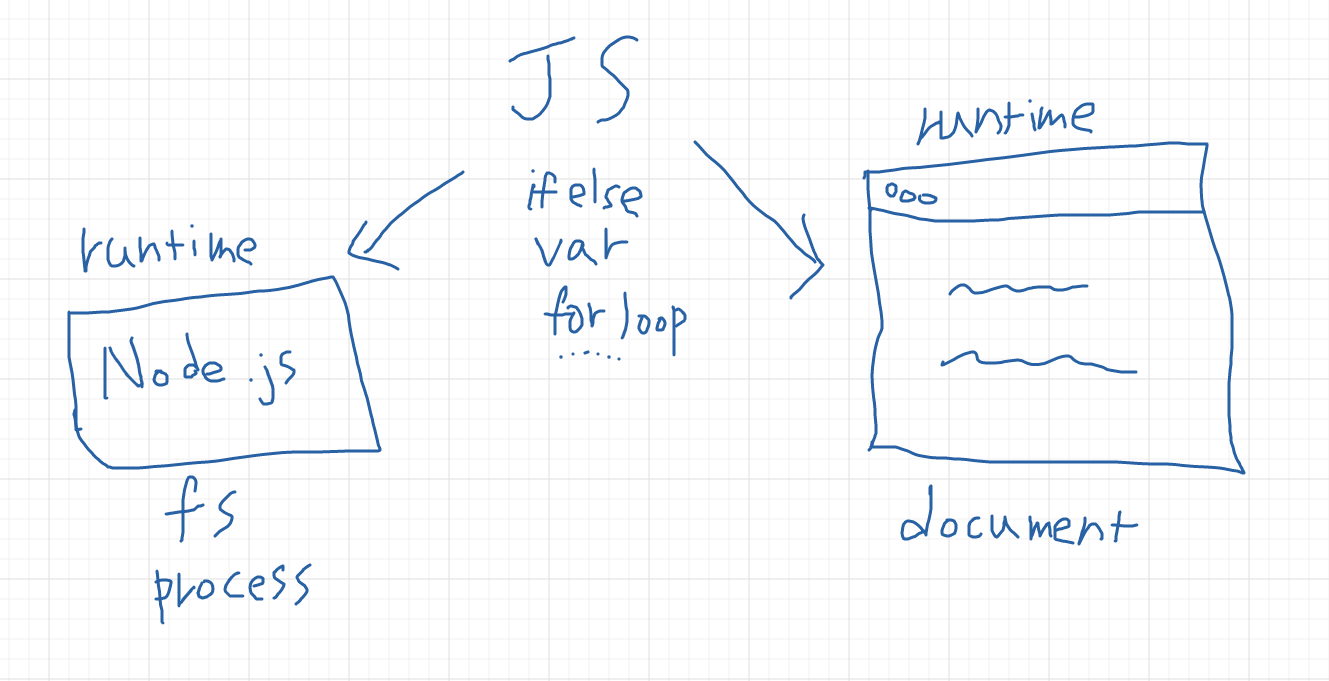 JS
if else
var
for loop
......
runtime
Node.js
fs
process
runtime
document